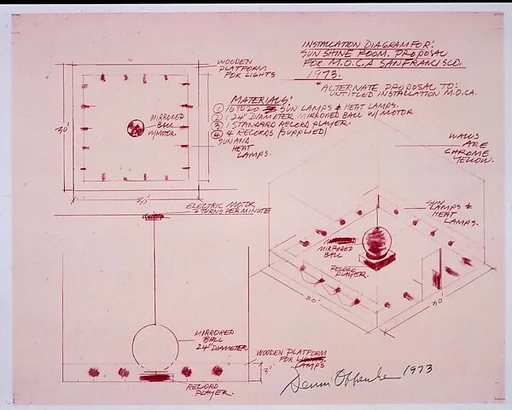 WOODEN
PLATFORM
FOR LIGHTS
INSTALLATION DIAGRAM FOR:
SUN SHINE ROOM. PROPOSAL
FOR M.O.C.A SAN FRANCISCO.
1973.
*ALTERNATE PROPOSAL TO:
UNTITLED INSTALLATION M.O.C.A.
MATERIALS:
① 15 TO 20 SUN LAMPS & HEAT LAMPS.
② 1 24" DIAMETER MIRRORED BALL W/ MOTOR
③ 1 STANDARD RECORD PLAYER.
④ 4 RECORDS (SUPPLIED)
SUN AND
HEAT
LAMPS.
MIRRORED
BALL
W/MOTOR
30'
30'
WALLS
ARE
CHROME
YELLOW.
ELECTRIC MOTOR
2 TURNS PER MINUTE
SUN
LAMPS &
HEAT
LAMPS.
MIRRORED
BALL
RECORD
PLAYER.
30'
30'
MIRRORED
BALL
24" DIAMETER
WOODEN PLATFORM
FOR LAMPS
3'
RECORD
PLAYER.
Dennis Oppenheim 1973